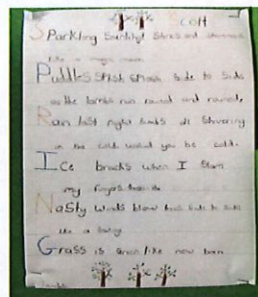 Scott
SParkling Sunlight Shines and shimmers
like a magic moon
PuddleS SPlish SPlash Side to Side
as the lambs run round and round,
Rain last night lambs all Shivering
in the cold would you be cold.
ICe cracks when I Slam
my fingers
NaSty winds blow from Side to Side
like a
GraSS is Green like new born